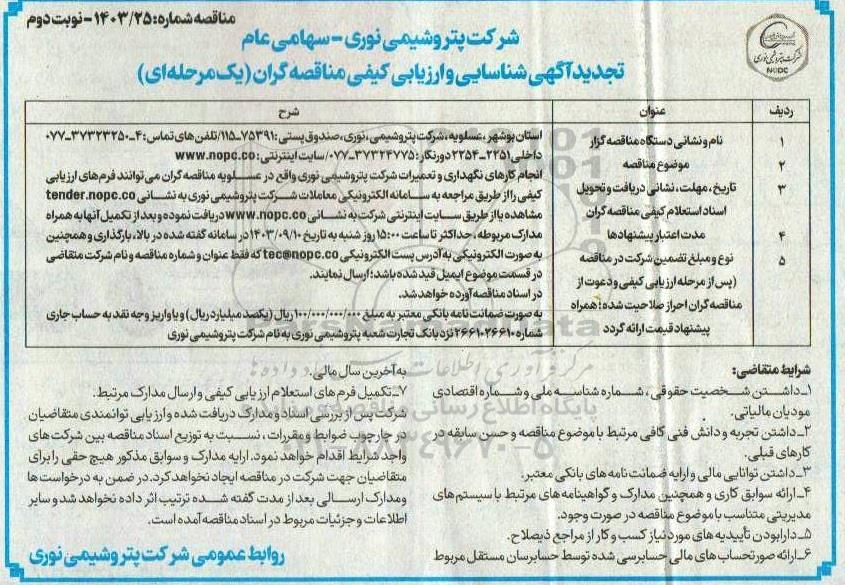 مناقصه شماره: ۱۴۰۳/۲۵ - نوبت دوم
شرکت پتروشیمی نوری - سهامی عام
تجدید آگهی شناسایی و ارزیابی کیفی مناقصه گران (یک مرحله ای)
شرکت پتروشیمی نوری
NOPC
ردیف عنوان شرح
۱ نام و نشانی دستگاه مناقصه گزار
استان بوشهر، عسلویه، شرکت پتروشیمی نوری، صندوق پستی: ۷۵۳۹۱-۱۱۵/ تلفن های تماس: ۴-۳۷۳۲۳۲۵۰-۰۷۷
داخلی ۲۲۵۱-۲۲۵۴ دورنگار: ۳۷۳۲۴۷۷۵-۰۷۷/ سایت اینترنتی: www.nopc.co
۲ موضوع مناقصه
انجام کارهای نگهداری و تعمیرات شرکت پتروشیمی نوری واقع در عسلویه مناقصه گران می توانند فرم های ارزیابی
۳ تاریخ، مهلت، نشانی دریافت و تحویل
اسناد استعلام کیفی مناقصه گران
کیفی را از طریق مراجعه به سامانه الکترونیکی معاملات شرکت پتروشیمی نوری به نشانی tender.nopc.co
مشاهده یا از طریق سایت اینترنتی شرکت به نشانی www.nopc.co دریافت نموده و بعد از تکمیل آنها به همراه
مدارک مربوطه، حداکثر تا ساعت ۱۵:۰۰ روز شنبه به تاریخ ۱۴۰۳/۰۹/۱۰ در سامانه گفته شده در بالا، بارگذاری و همچنین
به صورت الکترونیکی به آدرس پست الکترونیکی tec@nopc.co که فقط عنوان و شماره مناقصه و نام شرکت متقاضی
در قسمت موضوع ایمیل قید شده باشد؛ ارسال نمایند.
۴ مدت اعتبار پیشنهادها
در اسناد مناقصه آورده خواهد شد.
۵ نوع و مبلغ تضمین شرکت در مناقصه
(پس از مرحله ارزیابی کیفی و دعوت از
مناقصه گران احراز صلاحیت شده؛ همراه
پیشنهاد قیمت ارائه گردد
به صورت ضمانت نامه بانکی معتبر به مبلغ ۱۰۰/۰۰۰/۰۰۰/۰۰۰ ریال (یکصد میلیارد ریال) و یا واریز وجه نقد به حساب جاری
شماره ۲۶۶۱۰۲۶۶۱۰ نزد بانک تجارت شعبه پتروشیمی نوری به نام شرکت پتروشیمی نوری
شرایط متقاضی:
۱-داشتن شخصیت حقوقی، شماره شناسه ملی و شماره اقتصادی
مودیان مالیاتی.
۲-داشتن تجربه و دانش فنی کافی مرتبط با موضوع مناقصه و حسن سابقه در
کارهای قبلی.
۳-داشتن توانایی مالی و ارایه ضمانت نامه های بانکی معتبر.
۴-ارائه سوابق کاری و همچنین مدارک و گواهینامه های مرتبط با سیستم های
مدیریتی متناسب با موضوع مناقصه در صورت وجود.
۵-دارا بودن تأییدیه های مورد نیاز کسب و کار از مراجع ذیصلاح.
۶-ارائه صورتحساب های مالی حسابرسی شده توسط حسابرسان مستقل مربوط
به آخرین سال مالی.
۷-تکمیل فرم های استعلام ارزیابی کیفی و ارسال مدارک مرتبط.
شرکت پس از بررسی اسناد و مدارک دریافت شده و ارزیابی توانمندی متقاضیان
در چارچوب ضوابط و مقررات، نسبت به توزیع اسناد مناقصه بین شرکت های
واجد شرایط اقدام خواهد نمود. ارایه مدارک و سوابق مذکور هیچ حقی را برای
متقاضیان جهت شرکت در مناقصه ایجاد نخواهد کرد. در ضمن به درخواست ها
و مدارک ارسالی بعد از مدت گفته شده ترتیب اثر داده نخواهد شد و سایر
اطلاعات و جزئیات مربوط در اسناد مناقصه آمده است.
روابط عمومی شرکت پتروشیمی نوری